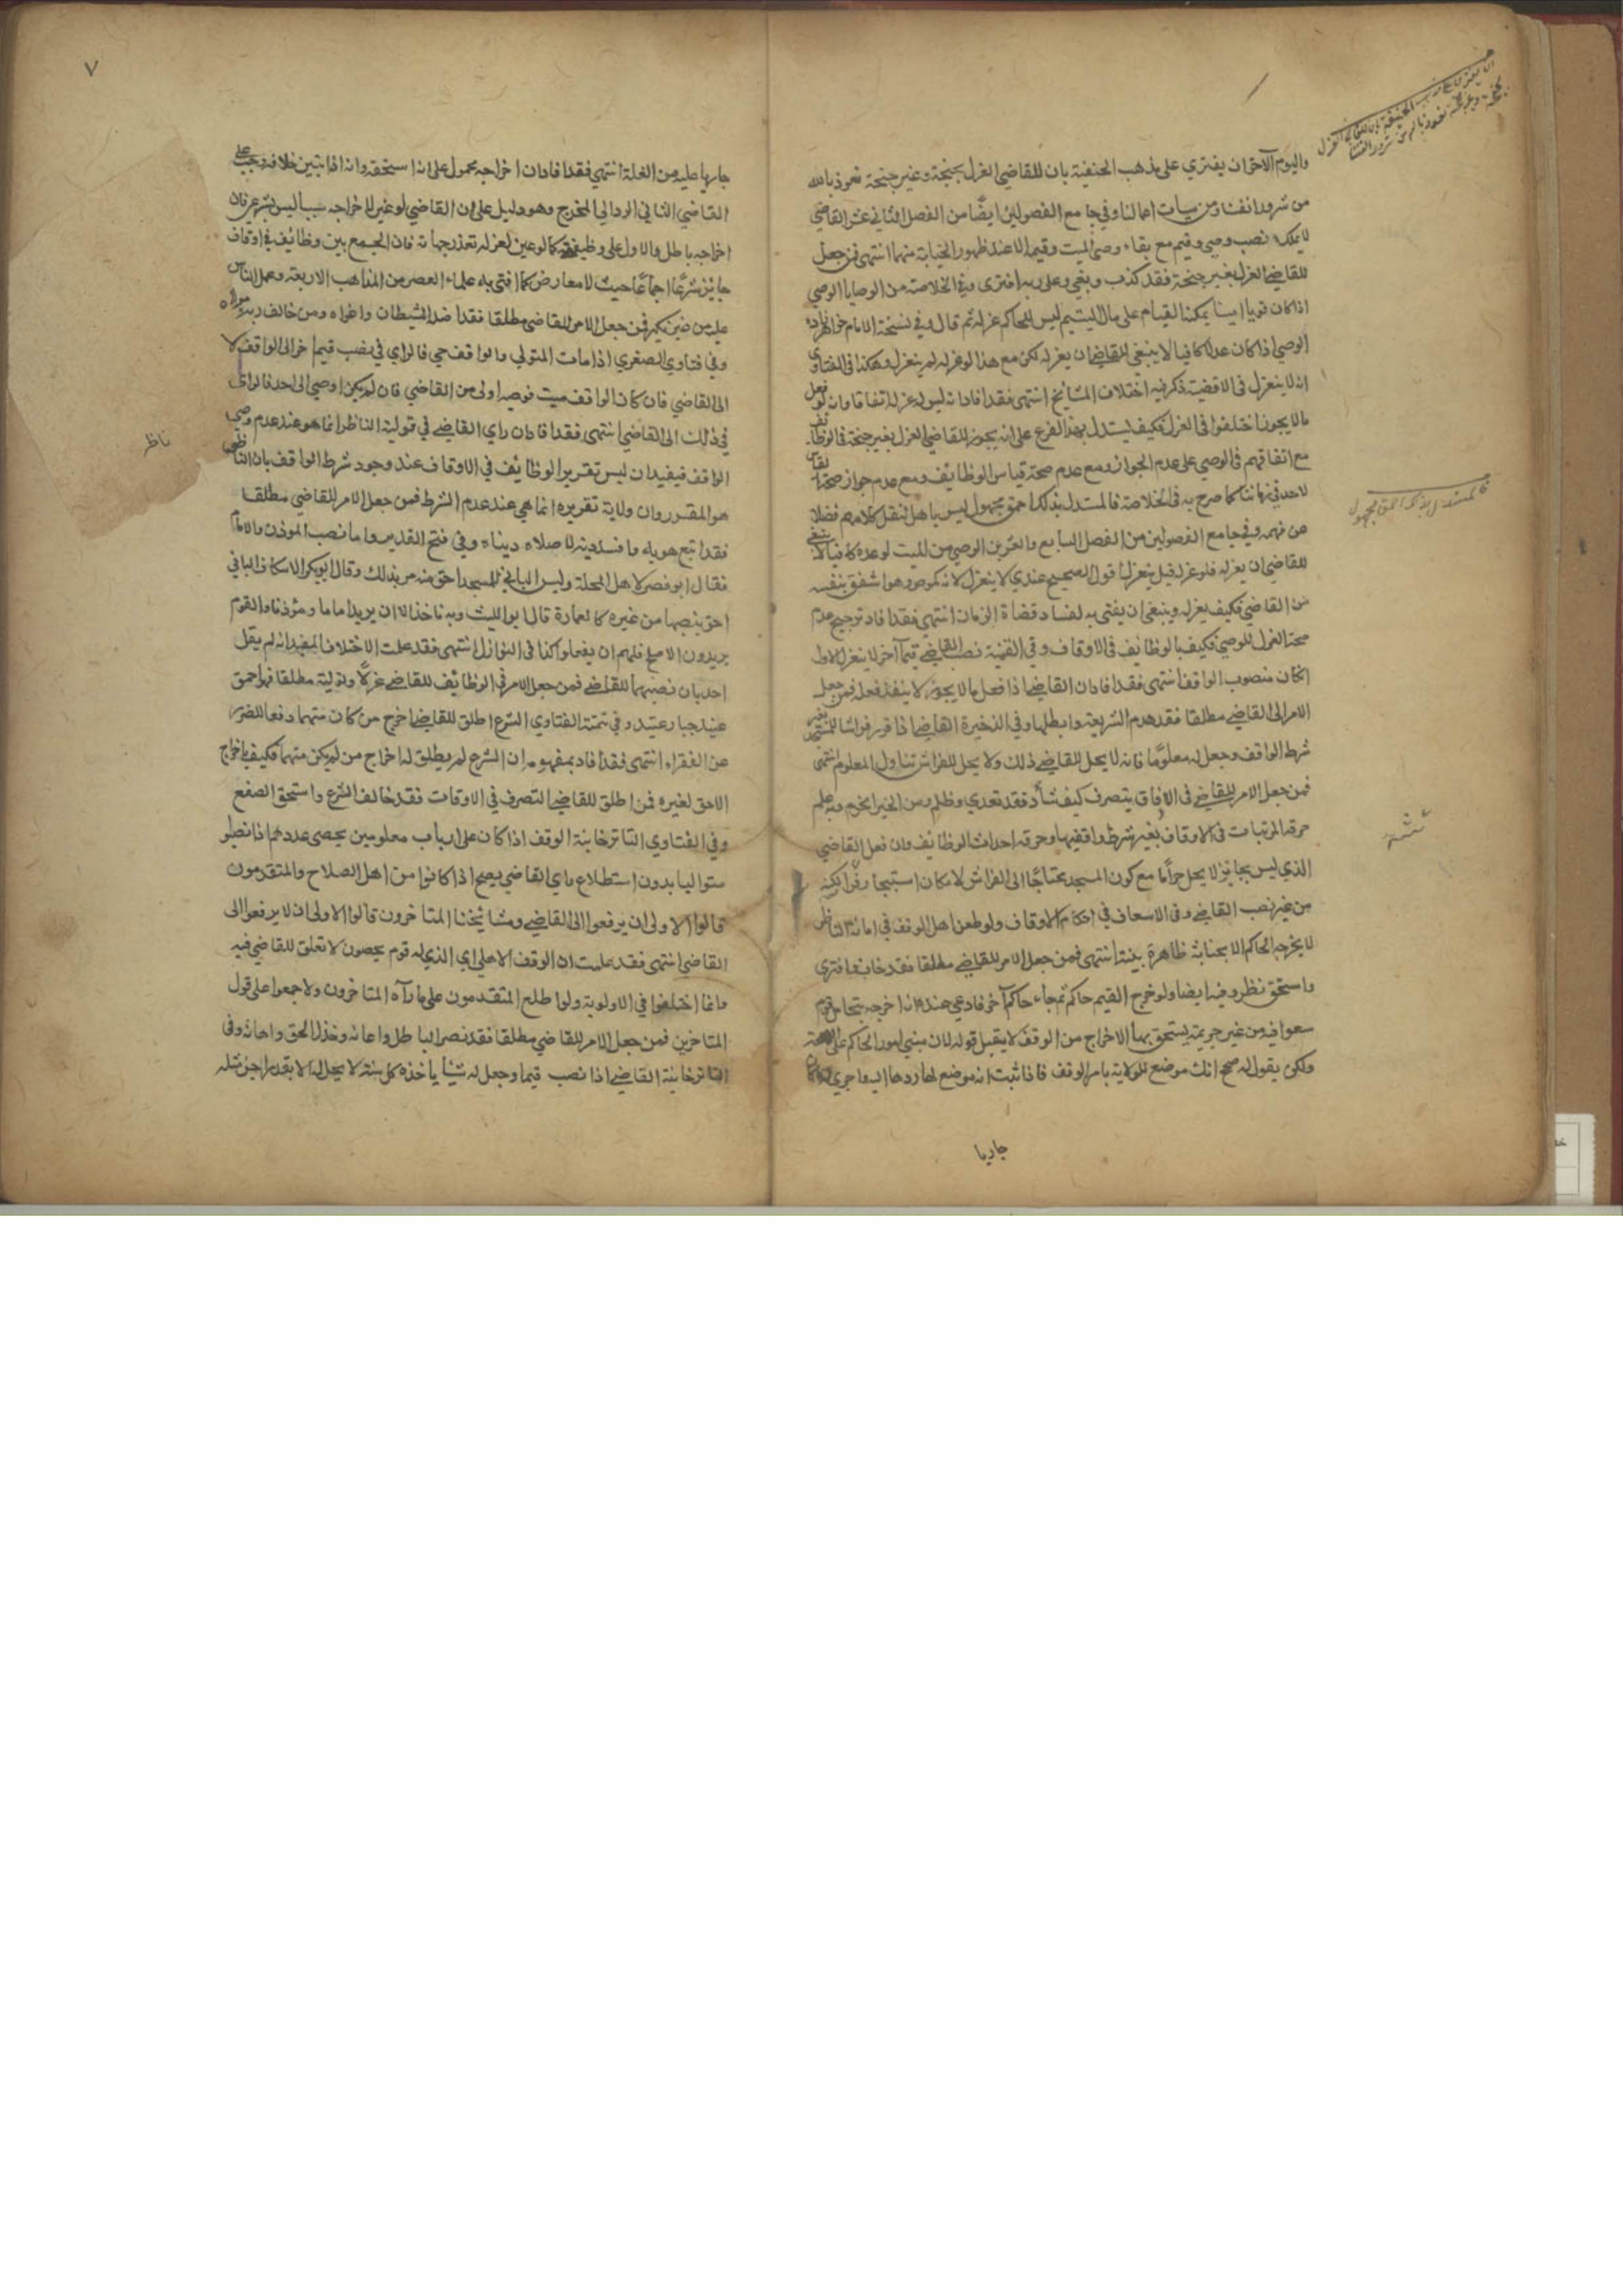 واليوم الآخر ان يفتري على مذهب الحنفية بان للقاضي العزل بجنحة وغير جنحة نعوذ بالله
من شرور انفسنا ومن سيات اعمالنا وفي جامع الفصولين ايضا من الفصل الثاني عشر القاضي
لا يملك نصب وصي وقيم مع بقاء وصي الميت وقيمه الا عند ظهور الخيانة منهما انتهى فمن جعل
للقاضي العزل بغير جنحة فقد كذب وبغي وعلى ربه افترى وفي الخلاصة من الوصايا الوصي
اذا كان قويا امينا يمكنه القيام على مال اليتيم ليس للحاكم عزله ثم قال وفي نسخة الامام خواهر زاده
الوصي اذا كان عدلا كافيا لا ينبغي للقاضي ان يعزله لكن مع هذا لو عزله لم ينعزل وهكذا في الفتاوى
انه لا ينعزل في الاقضية ذكر فيه اختلاف المشايخ انتهى فقد افاد انه ليس له عزله اتفاقا وان لو فعل
ما لا يجوز اختلفوا في العزل فكيف يستدل بهذا الفرع على انه يجوز للقاضي العزل بغير جنحة في الوظائف
مع اتفاقهم في الوصي على عدم الجواز ومع عدم صحة قياس الوظائف ومع عدم جواز صحة القياس
لاحد في زماننا كما صرح به في الخلاصة فالمستدل بذلك احمق مجهول ليس باهل لنقل كلامهم فضلا
عن فهمه وفي جامع الفصولين من الفصل السابع والعشرين الوصي من الميت لو عدلا كافيا لا ينبغي
للقاضي ان يعزله فلو عزله قيل ينعزل اقول الصحيح عندي لا ينعزل لانه كموص وهو اشفق بنفسه
من القاضي فكيف يعزله وينبغي ان يفتى به لفساد قضاة الزمان انتهى فقد افاد ترجيح عدم
صحة العزل للوصي فكيف بالوظائف في الاوقاف وفي القنية نصب القاضي قيما آخر لا ينعزل الاول
ان كان منصوب الواقف انتهى فقد افاد ان القاضي اذا فعل ما لا يجوز لا ينفذ فعله فمن جعل
الامر الى القاضي مطلقا فقد هدم الشريعة وابطلها وفي الذخيرة القاضي اذا قرر فراشا للمسجد بغير
شرط الواقف وجعل له معلوما فانه لا يحل للقاضي ذلك ولا يحل للفراش تناول المعلوم انتهى
فمن جعل الامر للقاضي في الاوقاف يتصرف كيف شاء فقد تعدي وظلم ومن الخير انخرم وبه علم
حرمة المرتبات في الاوقاف بغير شرط واقفيها وحرمة احداث الوظائف وان فعل القاضي
الذي ليس بجايز لا يحل حراما مع كون المسجد محتاجا الى الفراش لامكان استيجار فراش لكنه
من غير نصب القاضي وفي الاسعاف في احكام الاوقاف ولو طعن اهل الوقف في امانة الناظر
لا يخرجه الحاكم الا بخيانة ظاهرة بينة انتهى فمن جعل الامر للقاضي مطلقا فقد خاب وافترى
واستحق نظر وفيه ايضا ولو خرج القيم حاكم ثم جاء حاكم آخر فادعى عنده انه اخرجه بتحامل قوم
سعوا فيه من غير جريمة يستحق بها الاخراج من الوقف لا يقبل قوله لان مبني امور الحاكم على الصحة
ولكن يقول له صح انك موضع للولاية بامر الوقف فاذا ثبت انه موضع لها ردها اليه واجرى
جاريا
فالمستدل بذلك احمق مجهول
٧
جاريا عليه من الغلة انتهى فقد افاد ان اخراجه محمول على انه استحقه وانه اذا تبين خلافه وجب على
القاضي الثاني الرد الى المخرج وهو دليل على ان القاضي لو عين لاخراجه سببا ليس بشرعي فان
اخراجه باطل والاول على وظيفته كما لو عين لعزله تعذر جهاته فان الجمع بين وظائف في اوقاف
جايز شرعا اجماعا حيث لا معارض كما افتى به علماء العصر من المذاهب الاربعة وعمل الناس
عليه من غير نكير فمن جعل الامر للقاضي مطلقا فقد اضله الشيطان واغراه ومن خالف ربه ومولاه
وفي فتاوي الصغرى اذا مات المتولي والواقف حي فالراي في نصب قيم اخر الى الواقف لا
الى القاضي فان كان الواقف ميت فوصيه اولى من القاضي فان لم يكن اوصي الى احد فالراى
في ذلك الى القاضي انتهى فقد افاد ان راي القاضي في تولية الناظر انما هو عند عدم وصي
الواقف فيفيد ان ليس تقرير الوظائف في الاوقاف عند وجود شرط الواقف بان الناظر
هو المقرر وان ولاية تقريره انما هي عند عدم الشرط فمن جعل الامر للقاضي مطلقا
فقد اتبع هويه وافسد دينه لاصلاه دنياه وفي فتح القدير واما نصب الموذن والامام
فقال ابو نصر لاهل المحلة وليس الباني للمسجد احق منهم بذلك وقال ابو بكر الاسكاف الباني
احق بنصبهما من غيره كالعمارة قال ابو الليث وبه ناخذ الا ان يريد اماما ومؤذنا والقوم
يريدون الاصلح فلهم ان يفعلوا كذا في النوازل انتهى فقد علمت الاختلاف المفيد انه لم يقل
احد بان نصبهما للقاضي فمن جعل الامر في الوظائف للقاضي عزلا وتولية مطلقا فهو احمق
عنيد جبار عتيد وفي تتمة الفتاوي الشرع اطلق للقاضي اخرج من كان متهما دفعا للضرر
عن الفقراء انتهى فقد افاد بمفهومه ان الشرع لم يطلق له اخراج من لم يكن متهما فكيف باخراج
الاحق لغيره فمن اطلق للقاضي التصرف في الاوقات فقد خالف الشرع واستحق الصفع
وفي الفتاوي التاترخانية الوقف اذا كان على ارباب معلومين يحصى عددهم اذا نصبوا
متوليا بدون استطلاع راي القاضي يصح اذا كانوا من اهل الصلاح والمتقدمون
قالوا الاولى ان يرفعوا الى القاضي ومشائخنا المتاخرون قالوا الاولى ان لا يرفعوا الى
القاضي انتهى فقد علمت ان الوقف الاهلي اي الذي له قوم يحصون لا تعلق للقاضي فيه
وانما اختلفوا في الاولوية ولو اطلع المتقدمون على ما رآه المتاخرون ولاجمعوا على قول
المتاخرين فمن جعل الامر للقاضي مطلقا فقد نصر الباطل واعانه وخذل الحق واهانه وفى
التاترخانية القاضي اذا نصب قيما وجعل له شيئا ياخذه كل سنة لا يحل له الا بقدر اجر مثله
ناظر